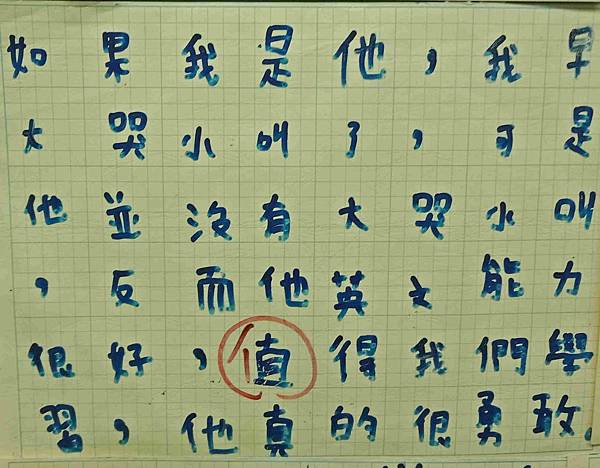 如果我是他,我早
大哭小叫了,可是
他並沒有大哭小叫
,反而他英文能力
很好,值得我們學
習,他真的很勇敢.